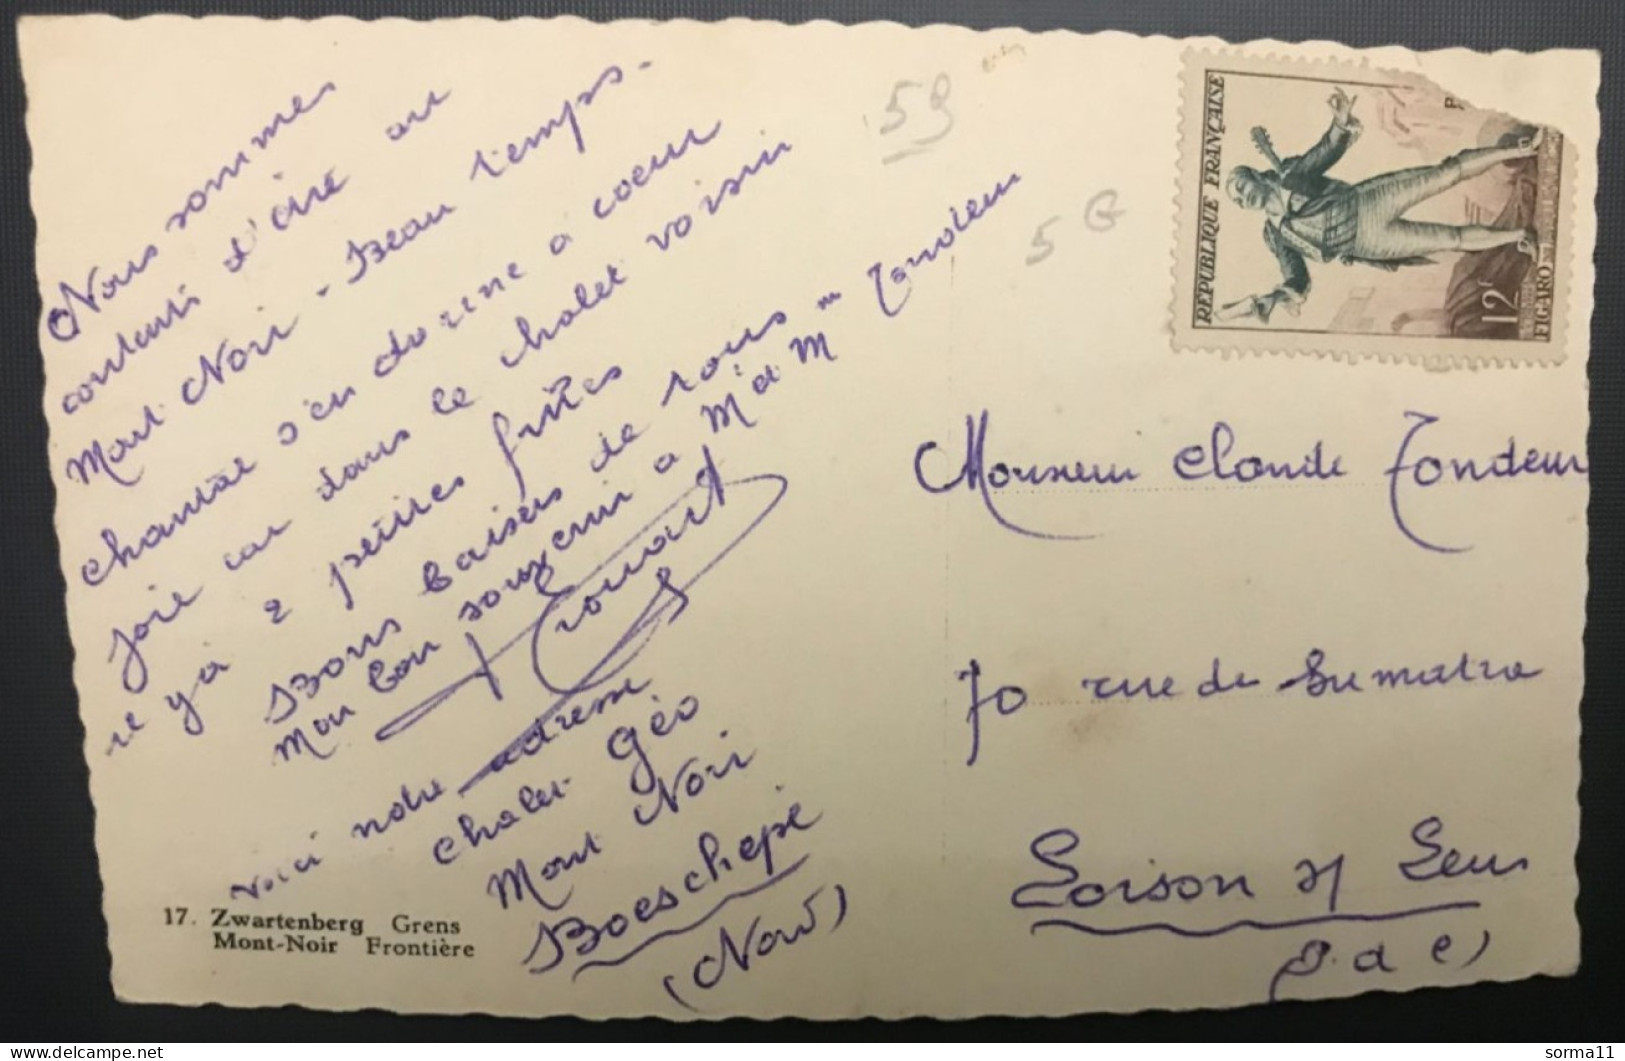 Nous sommes
contents d'être au
Mont Noir - Beau temps -
chantal s'en donne a coeur
joie car dans le chalet voisin
il y a 2 petites filles
Bons baisers de tous -
Mon bon souvenir a M et Mme Tondeur
voici notre adresse
chalet Géo
Mont Noir
Boeschepe
(Nord)
17. Zwartenberg Grens
Mont-Noir Frontière
59
5 G
REPUBLIQUE FRANÇAISE
12f
FIGARO
Monsieur Claude Tondeur
70 rue de Sumatra
Loison s/ Lens
(P. d C)
sorma11
delcampe.net